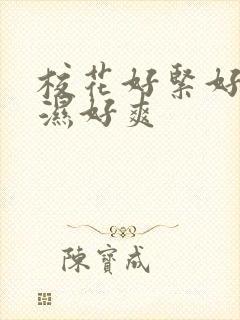 校花好緊好
濕好爽
陳寶成